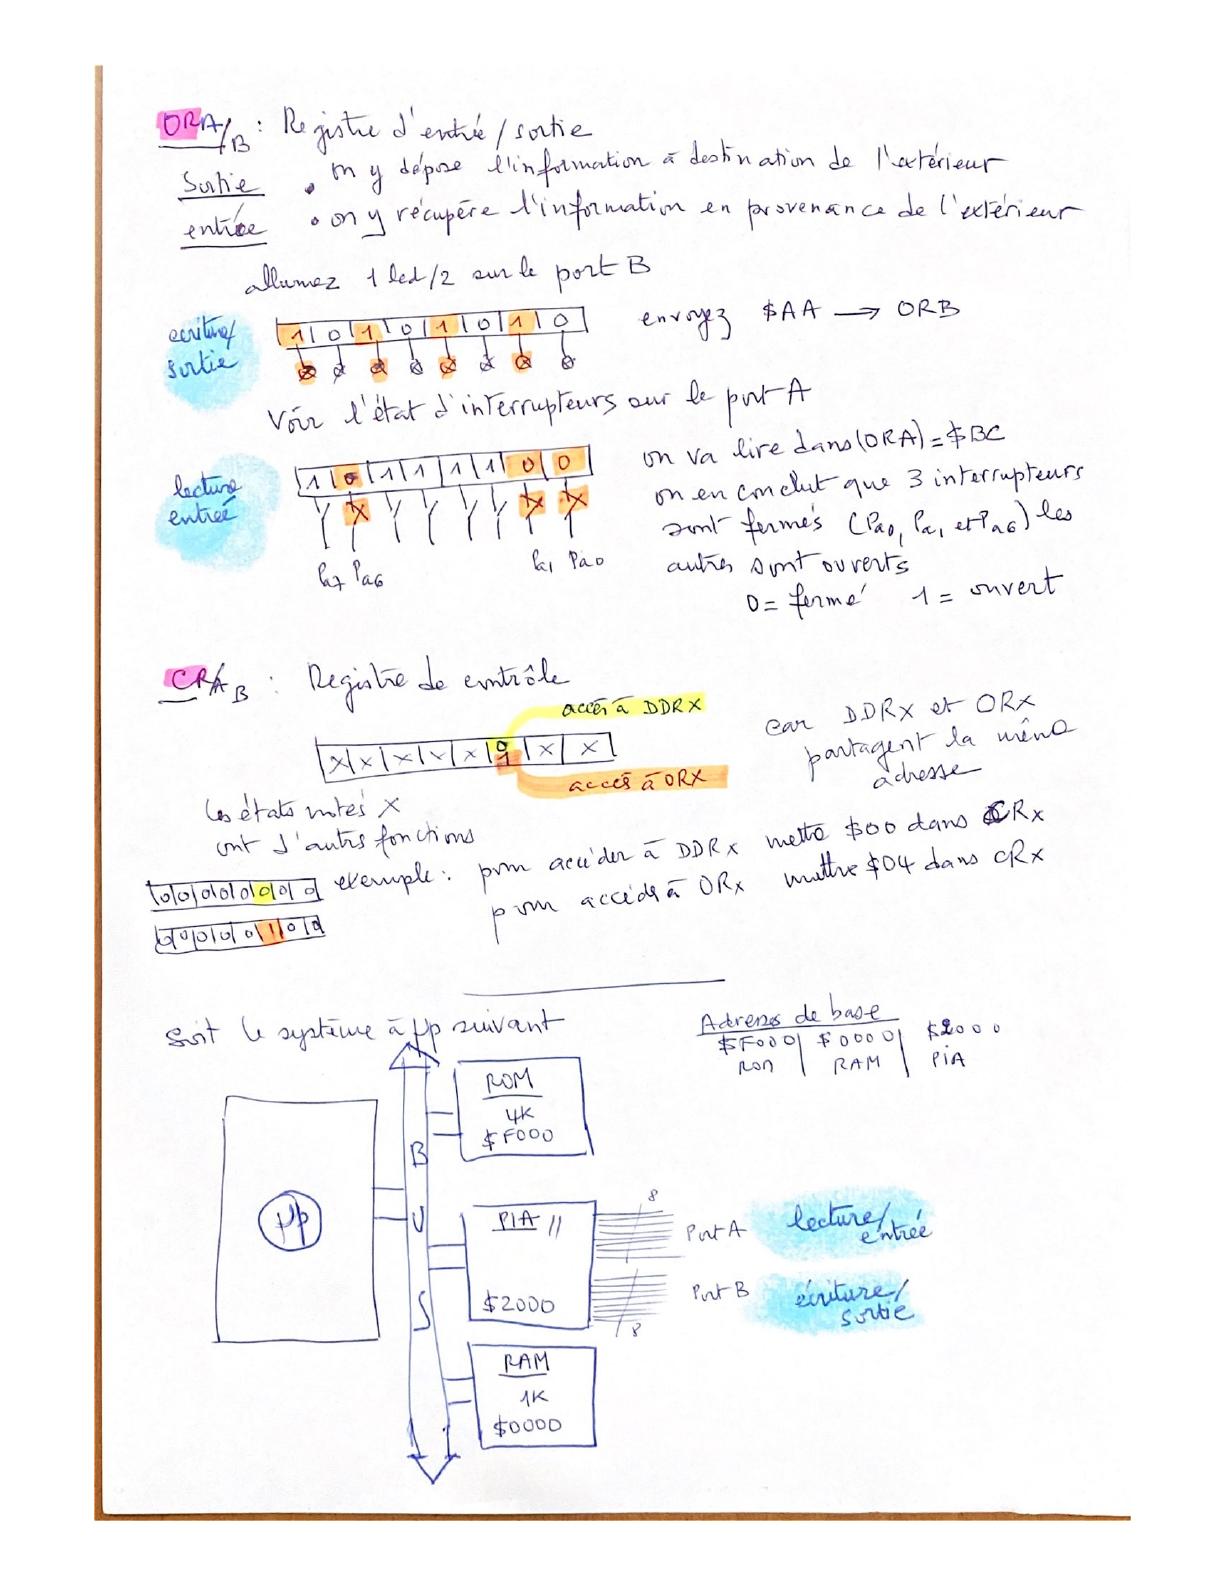 ORA/B : Registre d'entrée/sortie
Sortie • on y dépose l'information à destination de l'extérieur
entrée • on y récupère l'information en provenance de l'extérieur
allumez 1 led/2 sur le port B
ecriture/
sortie
1 0 1 0 1 0 1 0
envoyez $AA → ORB
Voir l'état d'interrupteurs sur le port A
lecture
entreé
1 0 1 1 1 1 0 0
Pa7 Pa6 Pa1 Pa0
on va lire dans (ORA) = $BC
on en conclut que 3 interrupteurs
sont fermés (Pa0, Pa1 et Pa6) les
autres sont ouverts
0 = fermé 1 = ouvert
CRA/B : Registre de contrôle
accès à DDRX
X X X X X 0 X X
1
accès à ORX
car DDRX et ORX
partagent la même
adresse
Les états notés X
ont d'autres fonctions
0 0 0 0 0 0 0 0
exemple : pour accéder à DDRX mettre $00 dans CRX
0 0 0 0 0 1 0 0
pour accéder à ORX mettre $04 dans CRX
Soit le système à µp suivant
Adresses de base
$F000 | $0000 | $2000
ROM | RAM | PIA
ROM
4K
$F000
BUS
µp
PIA //
$2000
8
Port A
lecture/
entrée
Port B
écriture/
sortie
8
RAM
1K
$0000